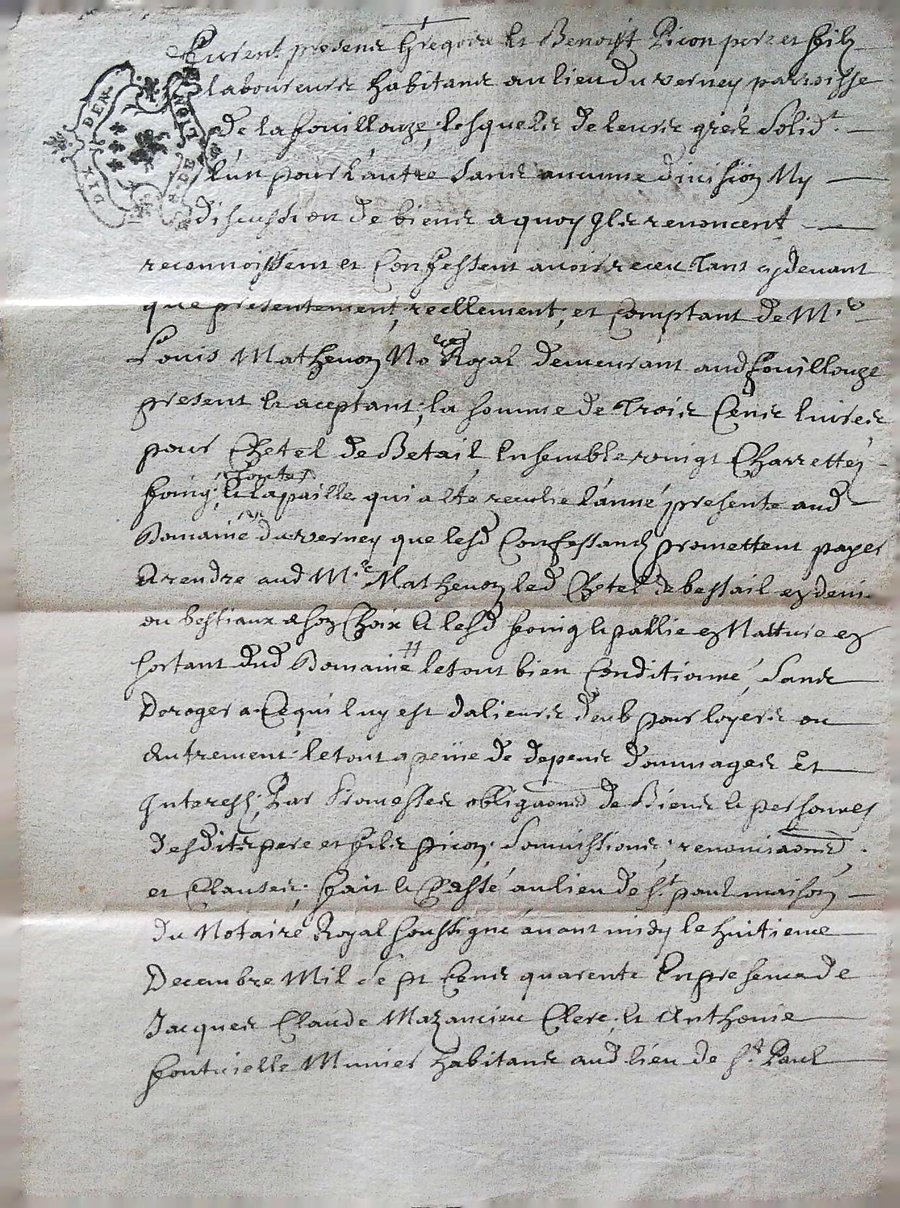 DIX DEN. GN. DE LION
Furent presens Gregoire et Benoist Picon pere et fils
laboureurs habitans au lieu du verney parroisse
de la fouillouze, lesquels de leurs grés solidt
l'un pour l'autre sans aucunne division ny
discution de biens a quoy ils renoncent
reconnoissent et Confessent avoir receu tant cy devant
que presentement, reellement, et Comptant de Mre
Louis Mathevon Nore Royal demeurant aud fouillouze
present et aceptant, la somme de Trois Cens livres
pour Chetel de Betail Ensemble vingt Charrettes
foing, et la paille qui a esté reculie l'anné presente aud
Domaine du verney que lesd Confessans promettent payer
& rendre aud Mre Mathevon led Chetel de bestail en deni.
ou bestiaux a son Choix & lesd foing et pallie en Natture en
sortant dud Domaine # le tout bien Conditionné, Sans
Deroger a Ce qui luy est dalieurs deub pour loyers ou
autrement. le tout a peine de depens dommages et
Interests, Par Promesses obligaons de Biens et personnes
desdits pere et fils picon, Soumissions, renonciaons,
et Clauses, fait et Passé au lieu de St paul maison
du Notaire Royal soussigné avant midy le huitieme
Decembre Mil sept Cens quarente En presence de
Jacques Claude Mazancieu Clerc, et Anthonie
Munier habitans aud lieu de St Paul